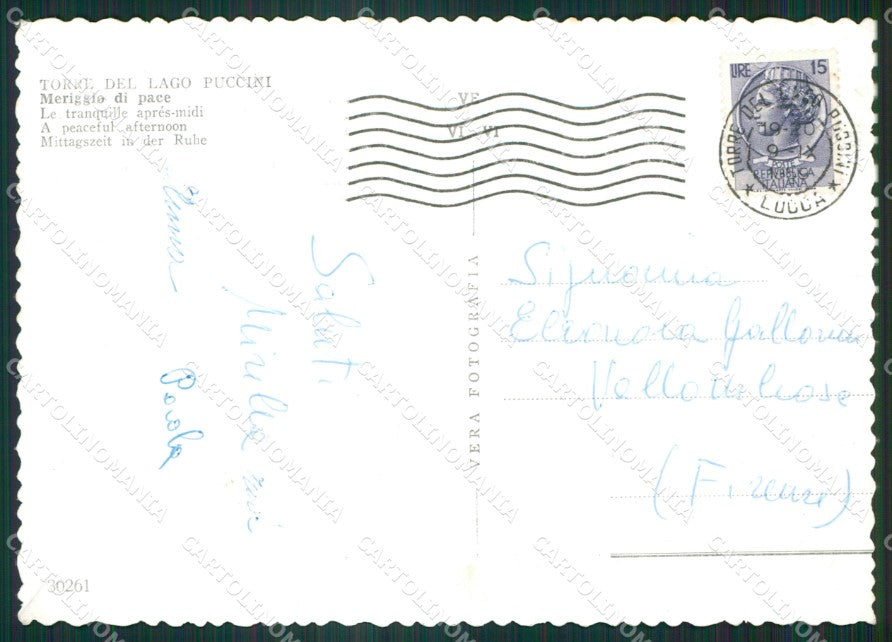 TORRE DEL LAGO PUCCINI
Meriggio di pace
Le tranquille aprés-midi
A peaceful afternoon
Mittagszeit in der Ruhe
VE
VI-VI
LIRE 15
POSTE
REPUBBLICA
ITALIANA
TORRE DEL LAGO PUCCINI
19-20
9 IX
* LUCCA *
Saluti
Mirella
Paola
VERA FOTOGRAFIA
Signorina
Eleonora
(Firenze)
30261
CARTOLINOMANIA